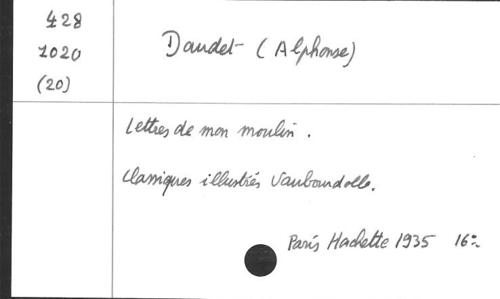 428
1020
(20)
Daudet (Alphonse)
Lettres de mon moulin.
Classiques illustrés Vaubourdolle.
Paris Hachette 1935 16º